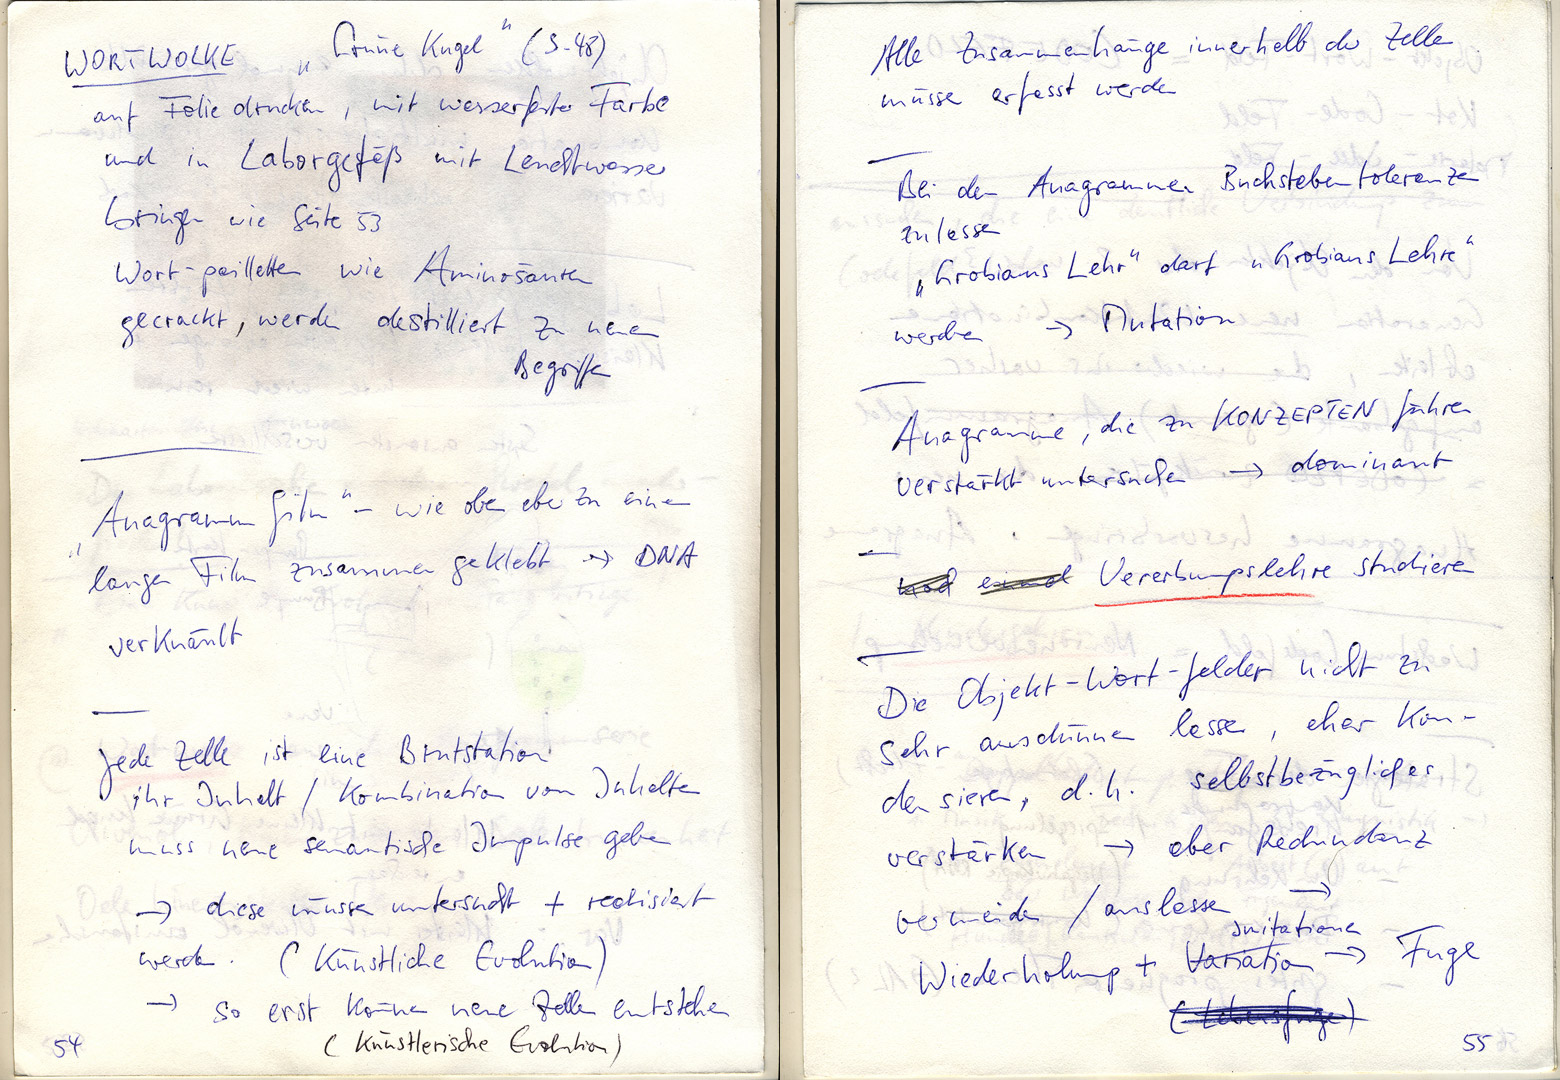 WORTWOLKE „Grüne Kugel" (S. 48)
auf Folie drucken, mit wasserfester Farbe
und in Laborgefäß mit Leuchtwasser
bringen wie Seite 53
Wort-pailletten wie Aminosäuren
gecrackt, werden destilliert zu neuen
Begriffen
„Anagramm Film" – wie oben eben zu einem
langen Film zusammen geklebt → DNA
verknäult
Jede Zelle ist eine Brutstation
ihr Inhalt / Kombination von Inhalten
muss neue semantische Impulse geben
→ diese müssen untersucht + realisiert
werden. (Künstliche Evolution)
→ so erst können neue Zellen entstehen
(Künstlerische Evolution)
54
Alle Zusammenhänge innerhalb der Zelle
müssen erfasst werden
Bei den Anagrammen Buchstabentoleranzen
zulassen
„Grobians Lehr" darf „Grobians Lehre"
werden → Mutation
Anagramme, die zu KONZEPTEN führen
verstärkt untersuchen → dominant
Vererbungslehre studieren
Die Objekt-Wort-felder nicht zu
sehr ausdünnen lassen, eher kon-
densieren, d.h. selbstbezügliches
verstärken → aber Redundanz
vermeiden / auslassen →
Imitationen
Wiederholung + Variation → Fuge
(Lebensfuge)
55